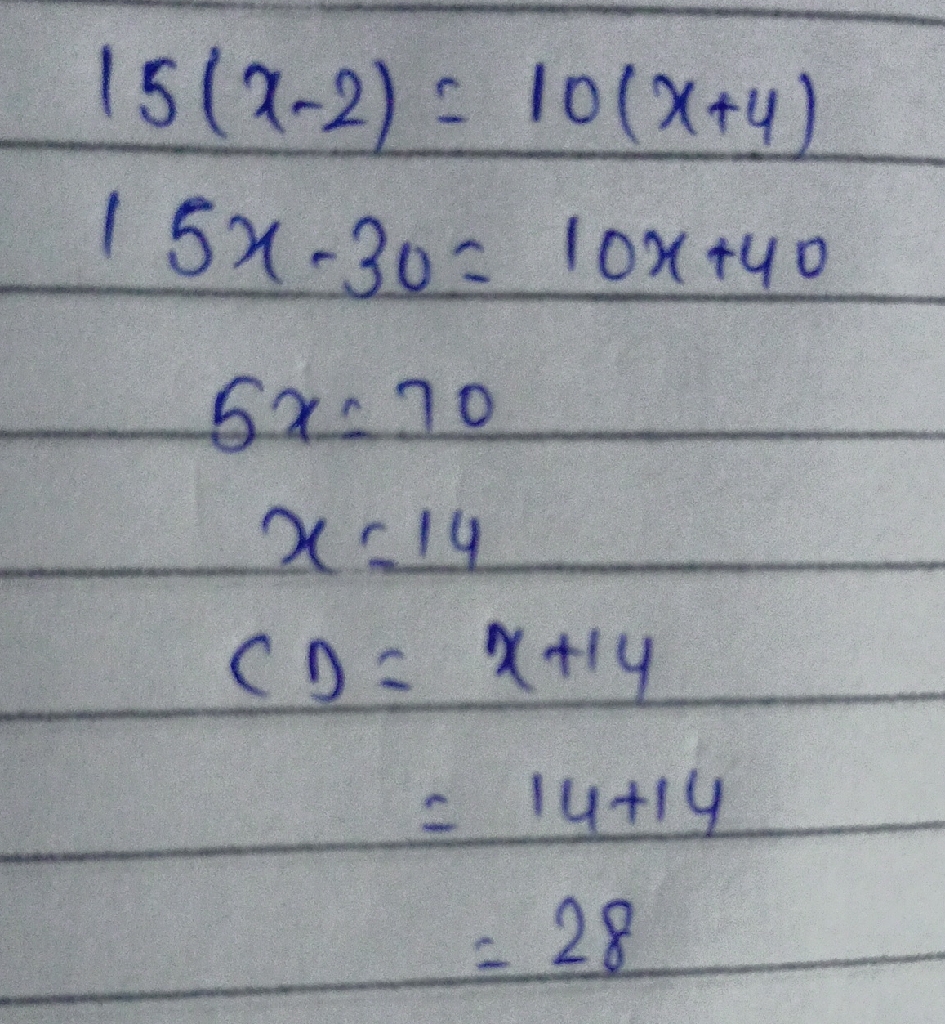 15(x-2) = 10(x+4)
15x-30 = 10x+40
5x = 70
x = 14
CD = x+14
= 14+14
= 28